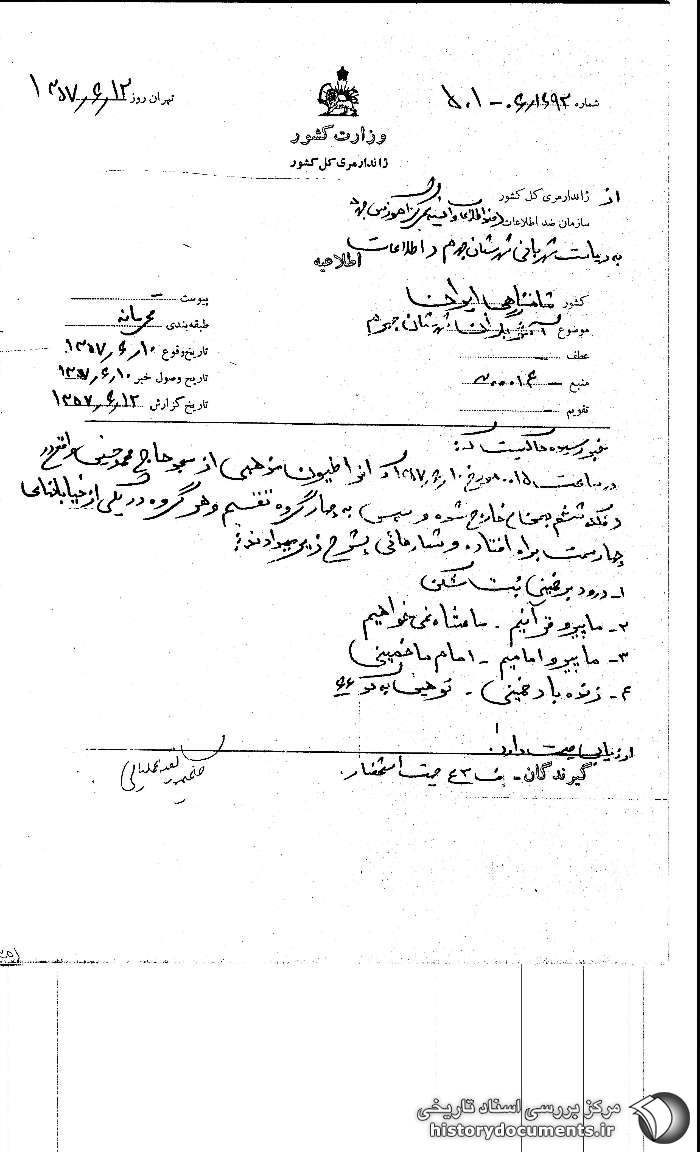 شماره ۵۰۱-۰۶/۱۶۹۲
تهران روز ۱۳۵۷/۶/۱۲
وزارت کشور
ژاندارمری کل کشور
از ژاندارمری کل کشور
سازمان ضد اطلاعات
به ریاست شهربانی شهرستان جهرم و اطلاعات
اطلاعیه
کشور شاهنشاهی ایران
موضوع شهرستان جهرم
عطف –
منبع
تقویم –
پیوست –
طبقه‌بندی محرمانه
تاریخ وقوع ۱۳۵۷/۶/۱۰
تاریخ وصول خبر ۱۳۵۷/۶/۱۰
تاریخ گزارش ۱۳۵۷/۶/۱۲
خبر رسیده حاکیست که:
در ساعت مورخ ۵۷/۶/۱۰ افراطیون مذهبی از مسجد حاج محمد حسینی واقع در
فلکه ششم بهمن خارج شده و سپس به چهار گروه تقسیم و هر گروه در یکی از خیابانهای
چهار سمت براه افتاده و شعارهائی بشرح زیر میدادند:
۱- درود بر خمینی بت شکن
۲- ما پیرو قرآنیم - ما شاه نمی‌خواهیم
۳- ما پیرو امامیم - امام ما خمینی
۴- زنده باد خمینی - توهین به
ارزیابی صحت دارد.
گیرندگان - جهت استحضار.
مرکز بررسی اسناد تاریخی
historydocuments.ir